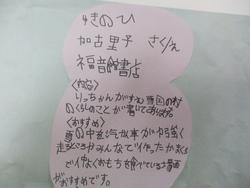 ゆきのひ
加古里子 さく/え
福音館書店
<内容>
りっちゃんがすむ雪国の村
のくらしのことが書いてあります。
<おすすめ>
雪の中を汽車が
走るところや みんなで作ったかまくら
で作なくおもちを食べている場面
がおすすめです。